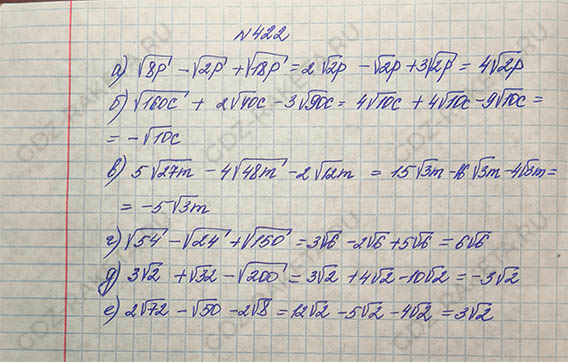 №422
а) √8p - √2p + √18p = 2√2p - √2p + 3√2p = 4√2p
б) √160c + 2√40c - 3√90c = 4√10c + 4√10c - 9√10c =
= -√10c
в) 5√27m - 4√48m - 2√12m = 15√3m - 16√3m - 4√3m =
= -5√3m
г) √54 - √24 + √150 = 3√6 - 2√6 + 5√6 = 6√6
д) 3√2 + √32 - √200 = 3√2 + 4√2 - 10√2 = -3√2
е) 2√72 - √50 - 2√8 = 12√2 - 5√2 - 4√2 = 3√2
GDZ-RAKETA.RU